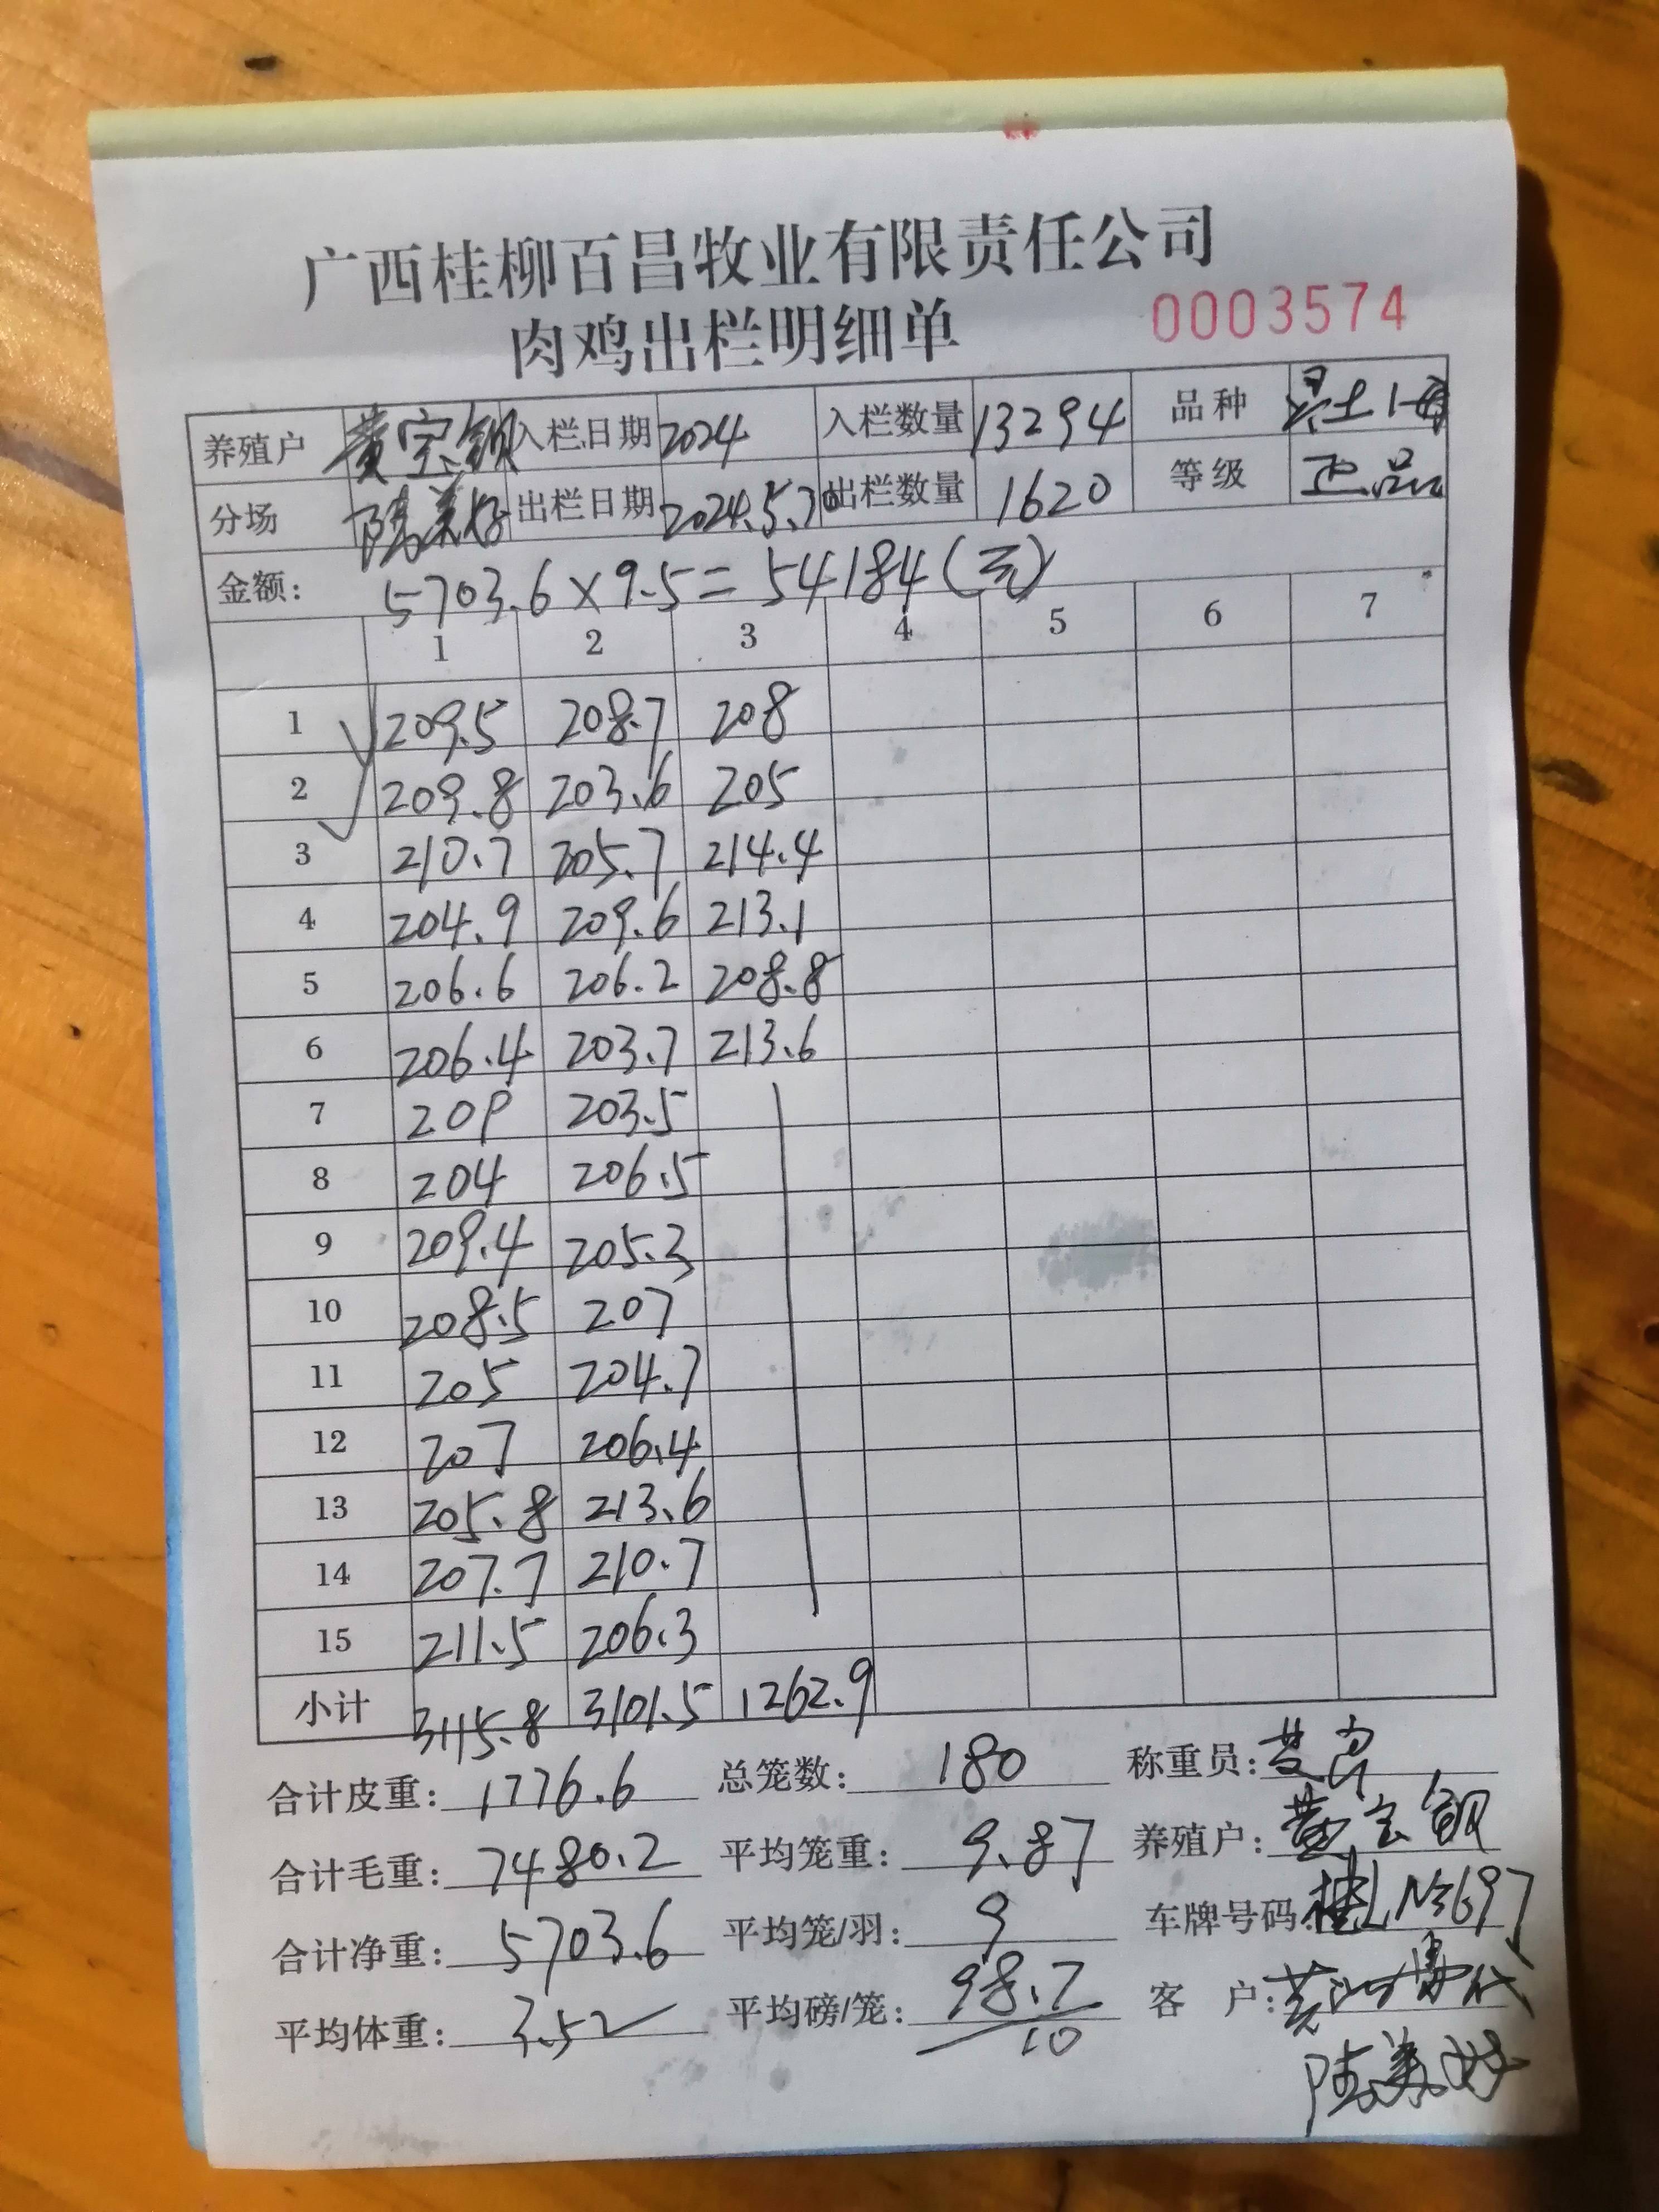 广西桂柳百昌牧业有限责任公司
肉鸡出栏明细单 0003574
养殖户 黄宝钡 入栏日期 2024 入栏数量 13294 品种 土
分场 陈美好 出栏日期 2024.5.30 出栏数量 1620 等级 正品
金额: 5703.6×9.5=54184(元)
1 2 3 4 5 6 7
1 209.5 208.7 208
2 209.8 203.6 205
3 210.7 205.7 214.4
4 204.9 209.6 213.1
5 206.6 206.2 208.8
6 206.4 203.7 213.6
7 209 203.5
8 204 206.5
9 209.4 205.3
10 208.5 207
11 205 204.7
12 207 206.4
13 205.8 213.6
14 207.7 210.7
15 211.5 206.3
小计 3115.8 3101.5 1262.9
合计皮重: 1776.6 总笼数: 180 称重员:
合计毛重: 7480.2 平均笼重: 9.87 养殖户: 黄宝钡
合计净重: 5703.6 平均笼/羽: 9 车牌号码: 桂LN3697
平均体重: 3.52 平均磅/笼: 98.7/10 客 户:
陈美好